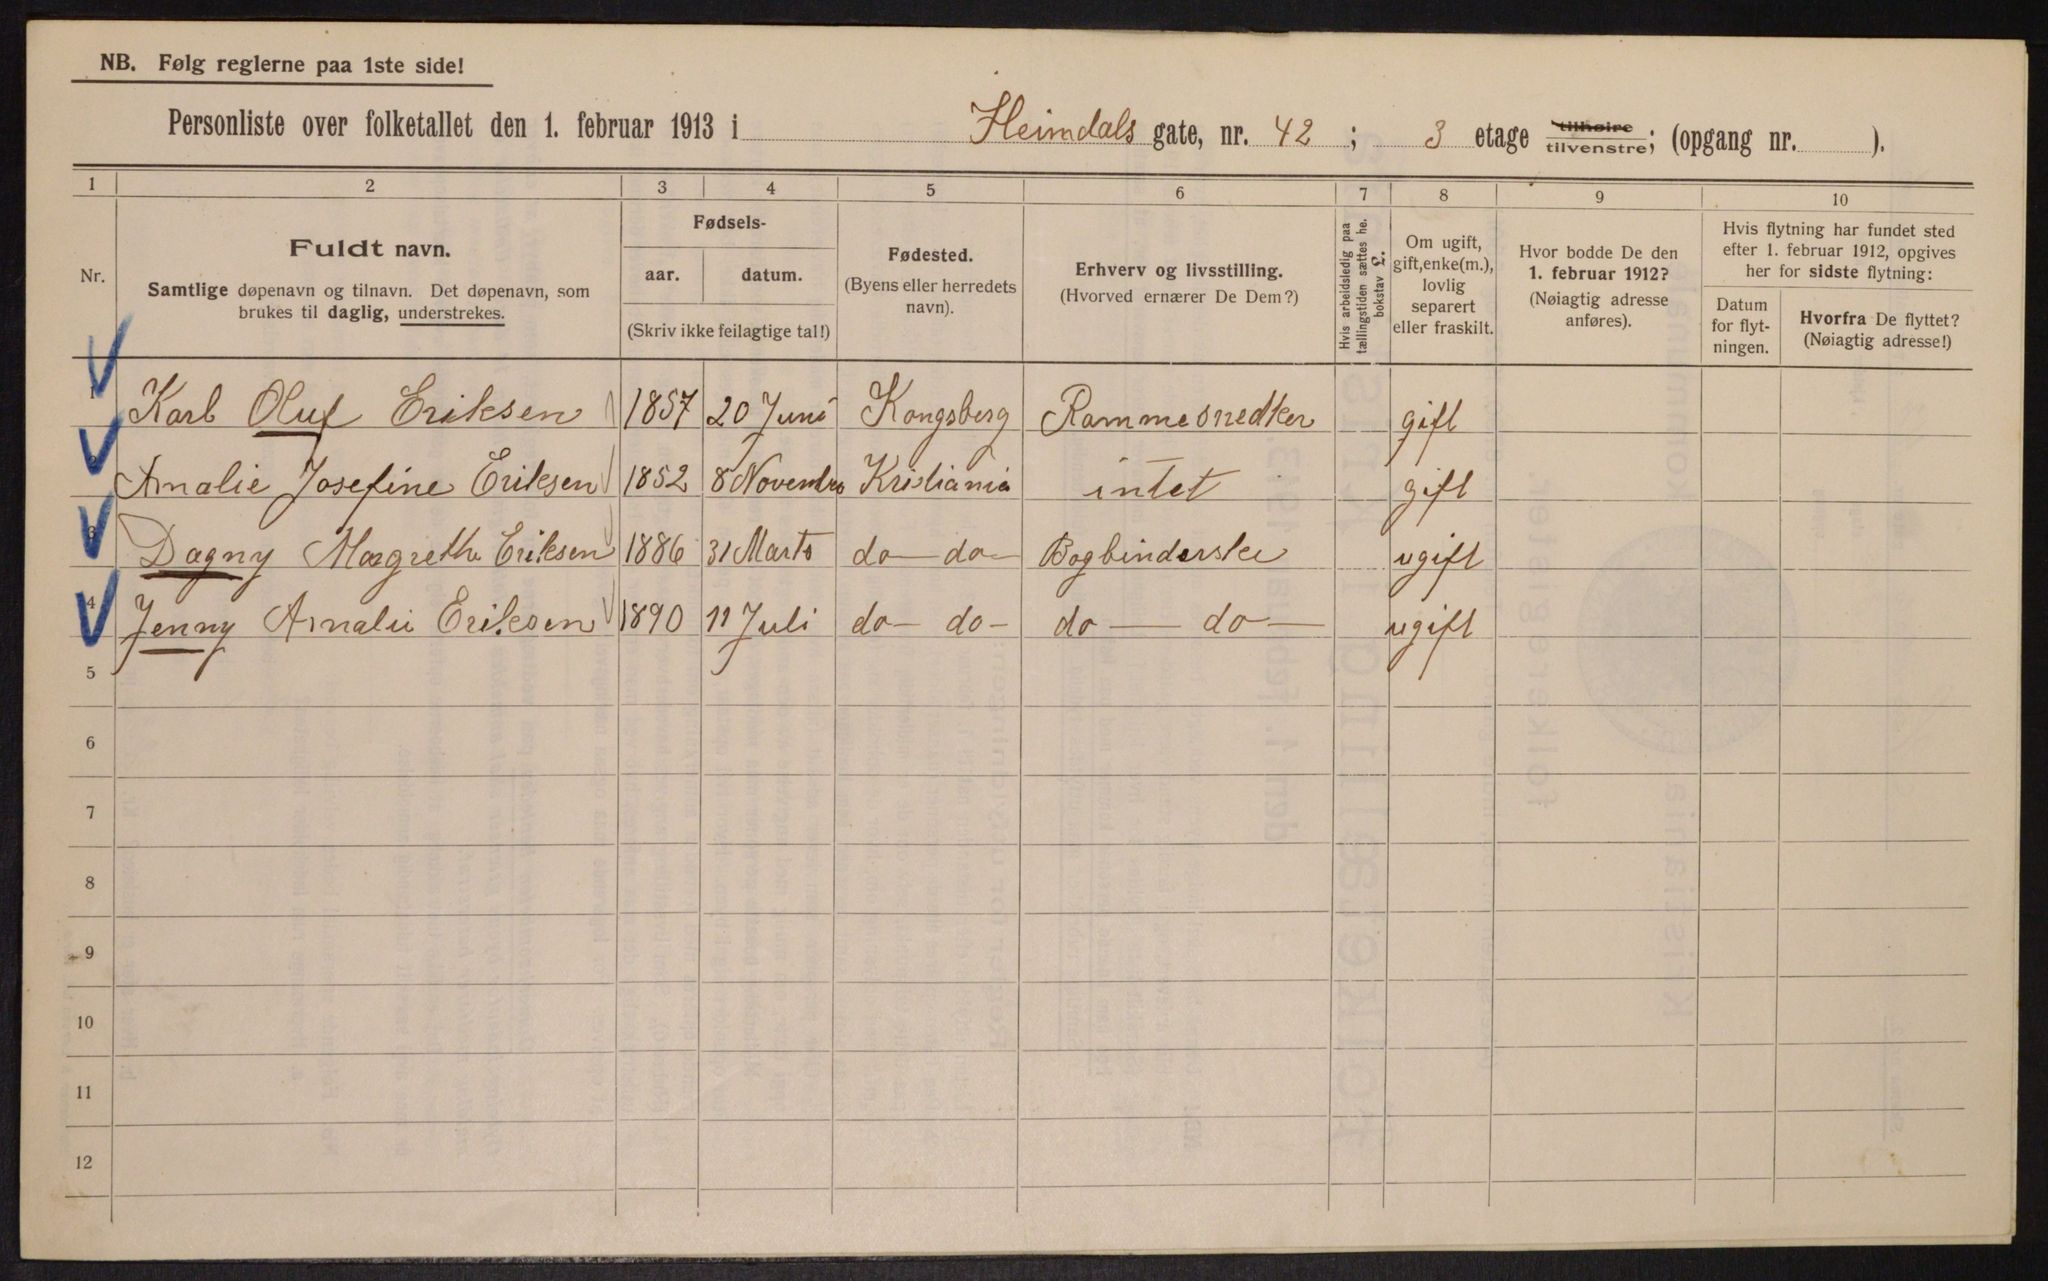 NB. Følg reglerne paa 1ste side!
Personliste over folketallet den 1. februar 1913 i Heimdals gate, nr. 42 ; 3 etage tilhøire tilvenstre; (opgang nr. ).
1 2 3 4 5 6 7 8 9 10
Nr.
Fuldt navn.
Samtlige døpenavn og tilnavn. Det døpenavn, som
brukes til daglig, understrekes.
Fødsels-
aar. datum.
(Skriv ikke feilagtige tal!)
Fødested.
(Byens eller herredets
navn).
Erhverv og livsstilling.
(Hvorved ernærer De Dem?)
Hvis arbeidsledig paa
tællingstiden sættes he.
bokstav L.
Om ugift,
gift, enke(m.),
lovlig
separert
eller fraskilt.
Hvor bodde De den
1. februar 1912?
(Nøiagtig adresse
anføres).
Hvis flytning har fundet sted
efter 1. februar 1912, opgives
her for sidste flytning:
Datum
for flyt-
ningen.
Hvorfra De flyttet?
(Nøiagtig adresse!)
1 Karl Oluf Eriksen 1857 20 Juni Kongsberg Rammesnedker gift
2 Amalie Josefine Eriksen 1852 8 Novembr Kristiania intet gift
3 Dagny Margrethe Eriksen 1886 31 Marts do do Bogbinderske ugift
4 Jenny Amalie Eriksen 1890 11 Juli do do do do ugift
5
6
7
8
9
10
11
12